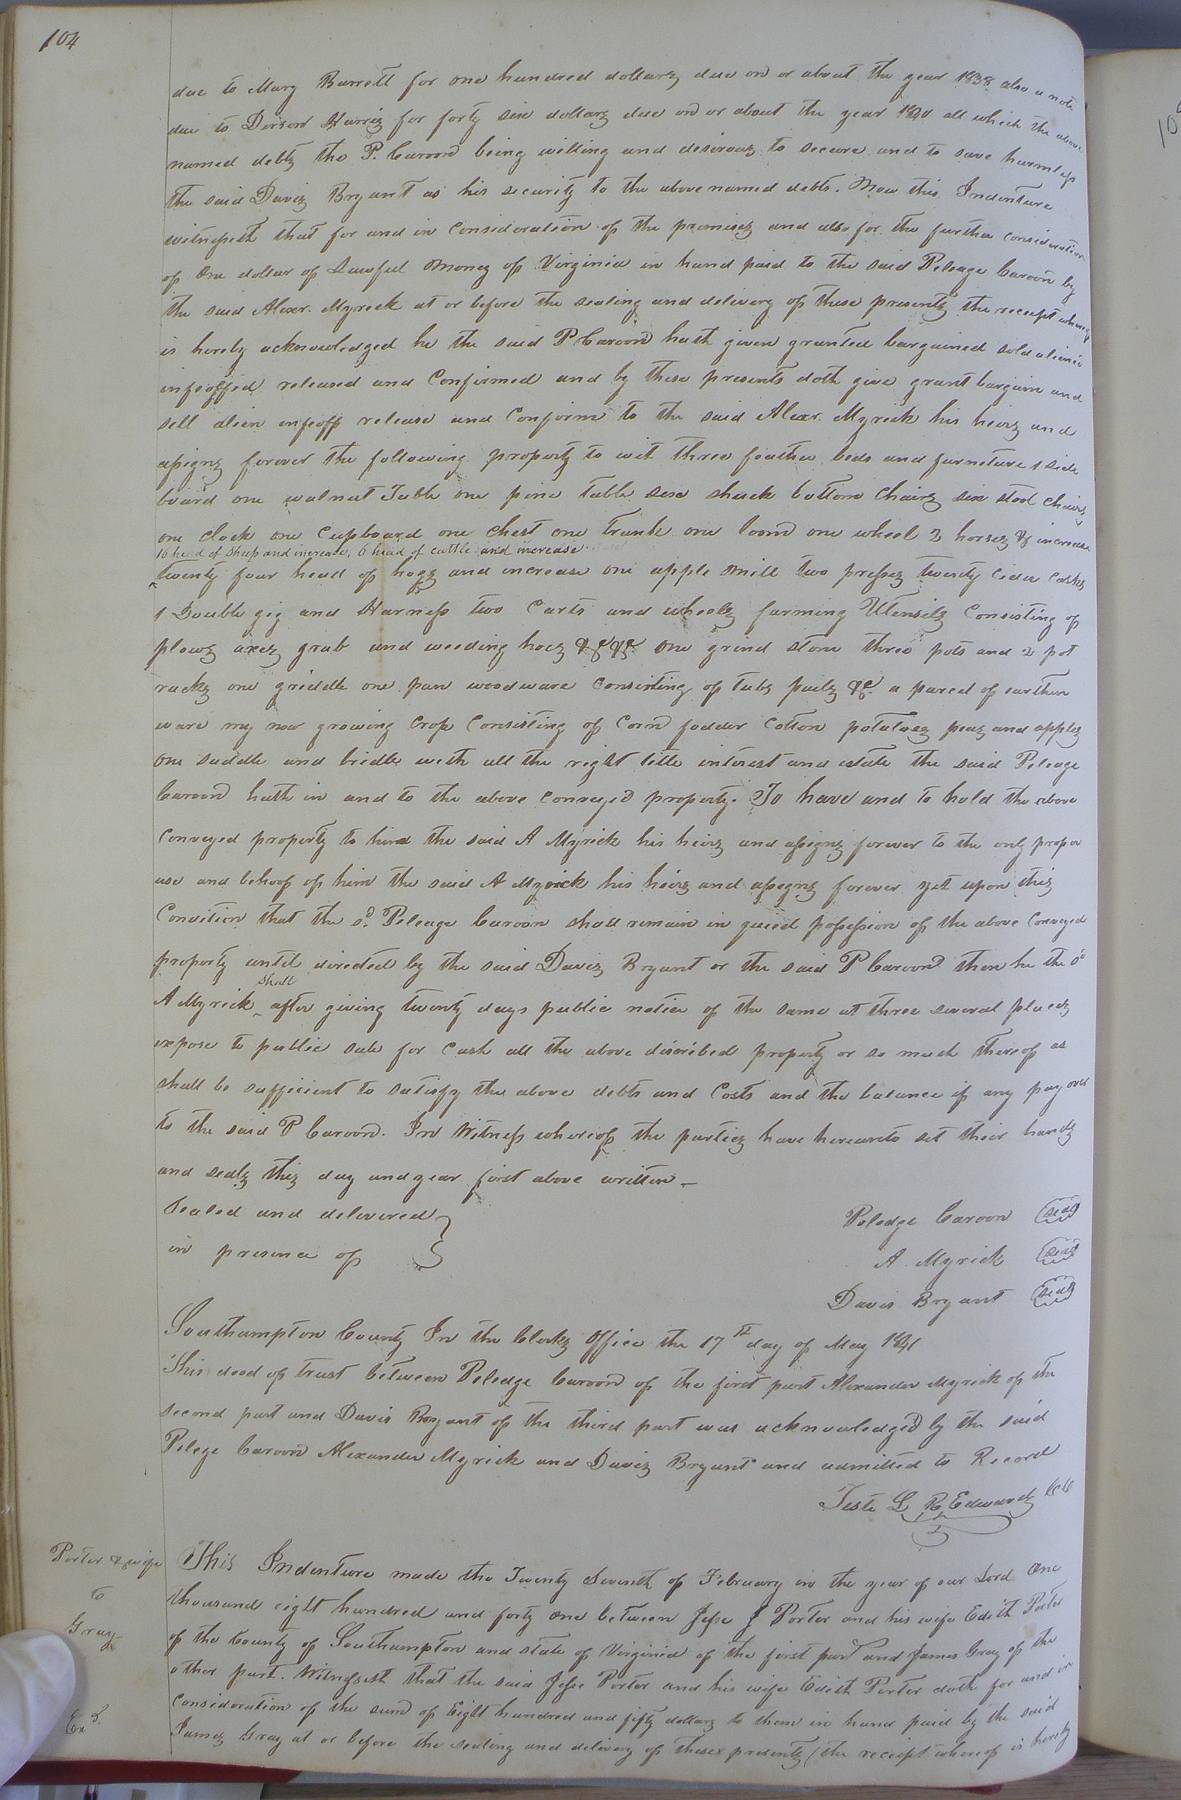 104
due to Mary Barrett for one hundred dollars due on or about the year 1838 also a note
due to Dorson Harris for forty six dollars due on or about the year 1840 all which the above
named debts the P. Caroon being willing and desirous to secure and to save harmless
the said Davis Bryant as his security to the above named debts. Now this Indenture
witnesseth that for and in consideration of the promises and also for the further consideration
of One dollar of Lawful money of Virginia in hand paid to the said Peleage Caroon by
the said Alexr. Myrick at or before the sealing and delivery of these presents the receipt whereof
is hereby acknowledged he the said P Caroon hath given granted bargained sold aliened
infeoffed released and Confirmed and by these presents doth give grant bargain and
sell alien infeoff release and Conform to the said Alexr. Myrick his heirs and
assigns forever the following property to wit three feather beds and furniture 1 side
board one walnut Table one pine table six shuck bottom Chairs six stool Chairs
one clock one Cupboard one chest one trunk one loom one wheel 2 horses & increase
16 head of sheep and increase, 6 head of cattle and increase
twenty four head of hogs and increase one apple mill two presses twenty Cider Casks
1 Double gig and Harness two Carts and wheels farming Utensils Consisting of
plows axes grub and weeding hoes &c &c one grind stone three pots and 2 pot
racks one griddle one pan woodware Consisting of tubs pails &c. a parcel of earthen
ware my now growing Crop Consisting of Corn fodder Cotton potatoes peas and apples
one saddle and bridle with all the right title interest and estate the said Peleage
Caroon hath in and to the above Conveyed property. To have and to hold the above
Conveyed property to him the said A Myrick his heirs and assigns forever to the only proper
use and behoof of him the said A Myrick his heirs and assigns forever yet upon this
Condition that the sd. Peleage Caroon shall remain in quied possession of the above Conveyed
property until directed by the said Davis Bryant or the said P Caroon then he the sd
shall
A Myrick ^ after giving twenty days public notice of the same at three several places
expose to public sale for Cash all the above discribed property or so much thereof as
shall be sufficient to satisfy the above debts and Costs and the balance if any pay over
to the said P Caroon. In Witness whereof the parties have hereunto set their hands
and seals this day and year first above written —
Sealed and delivered }
in presence of }
Peledge Caroon (Seal)
A Myrick (Seal)
Davis Bryant (Seal)
Southampton County In the Clerks Office the 17th day of May 1841
This deed of trust between Peledge Caroon of the first part Alexander Myrick of the
second part and Davis Bryant of the third part was acknowledged by the said
Pelege Caroon Alexander Myrick and Davis Bryant and admitted to Record
Teste L R Edwards
Porter & wife
to
Gray
Exd.
This Indenture made the Twenty Seventh of February in the year of our Lord One
thousand eight hundred and forty one between Jesse J Porter and his wife Edith Porter
of the County of Southampton and state of Virginia of the first part and James Gray of the
other part. Witnesseth that the said Jesse Porter and his wife Edith Porter doth for and in
Consideration of the sum of Eight hundred and fifty dollars to them in hand paid by the said
James Gray at or before the sealing and delivery of these presents (the receipt whereof is hereby